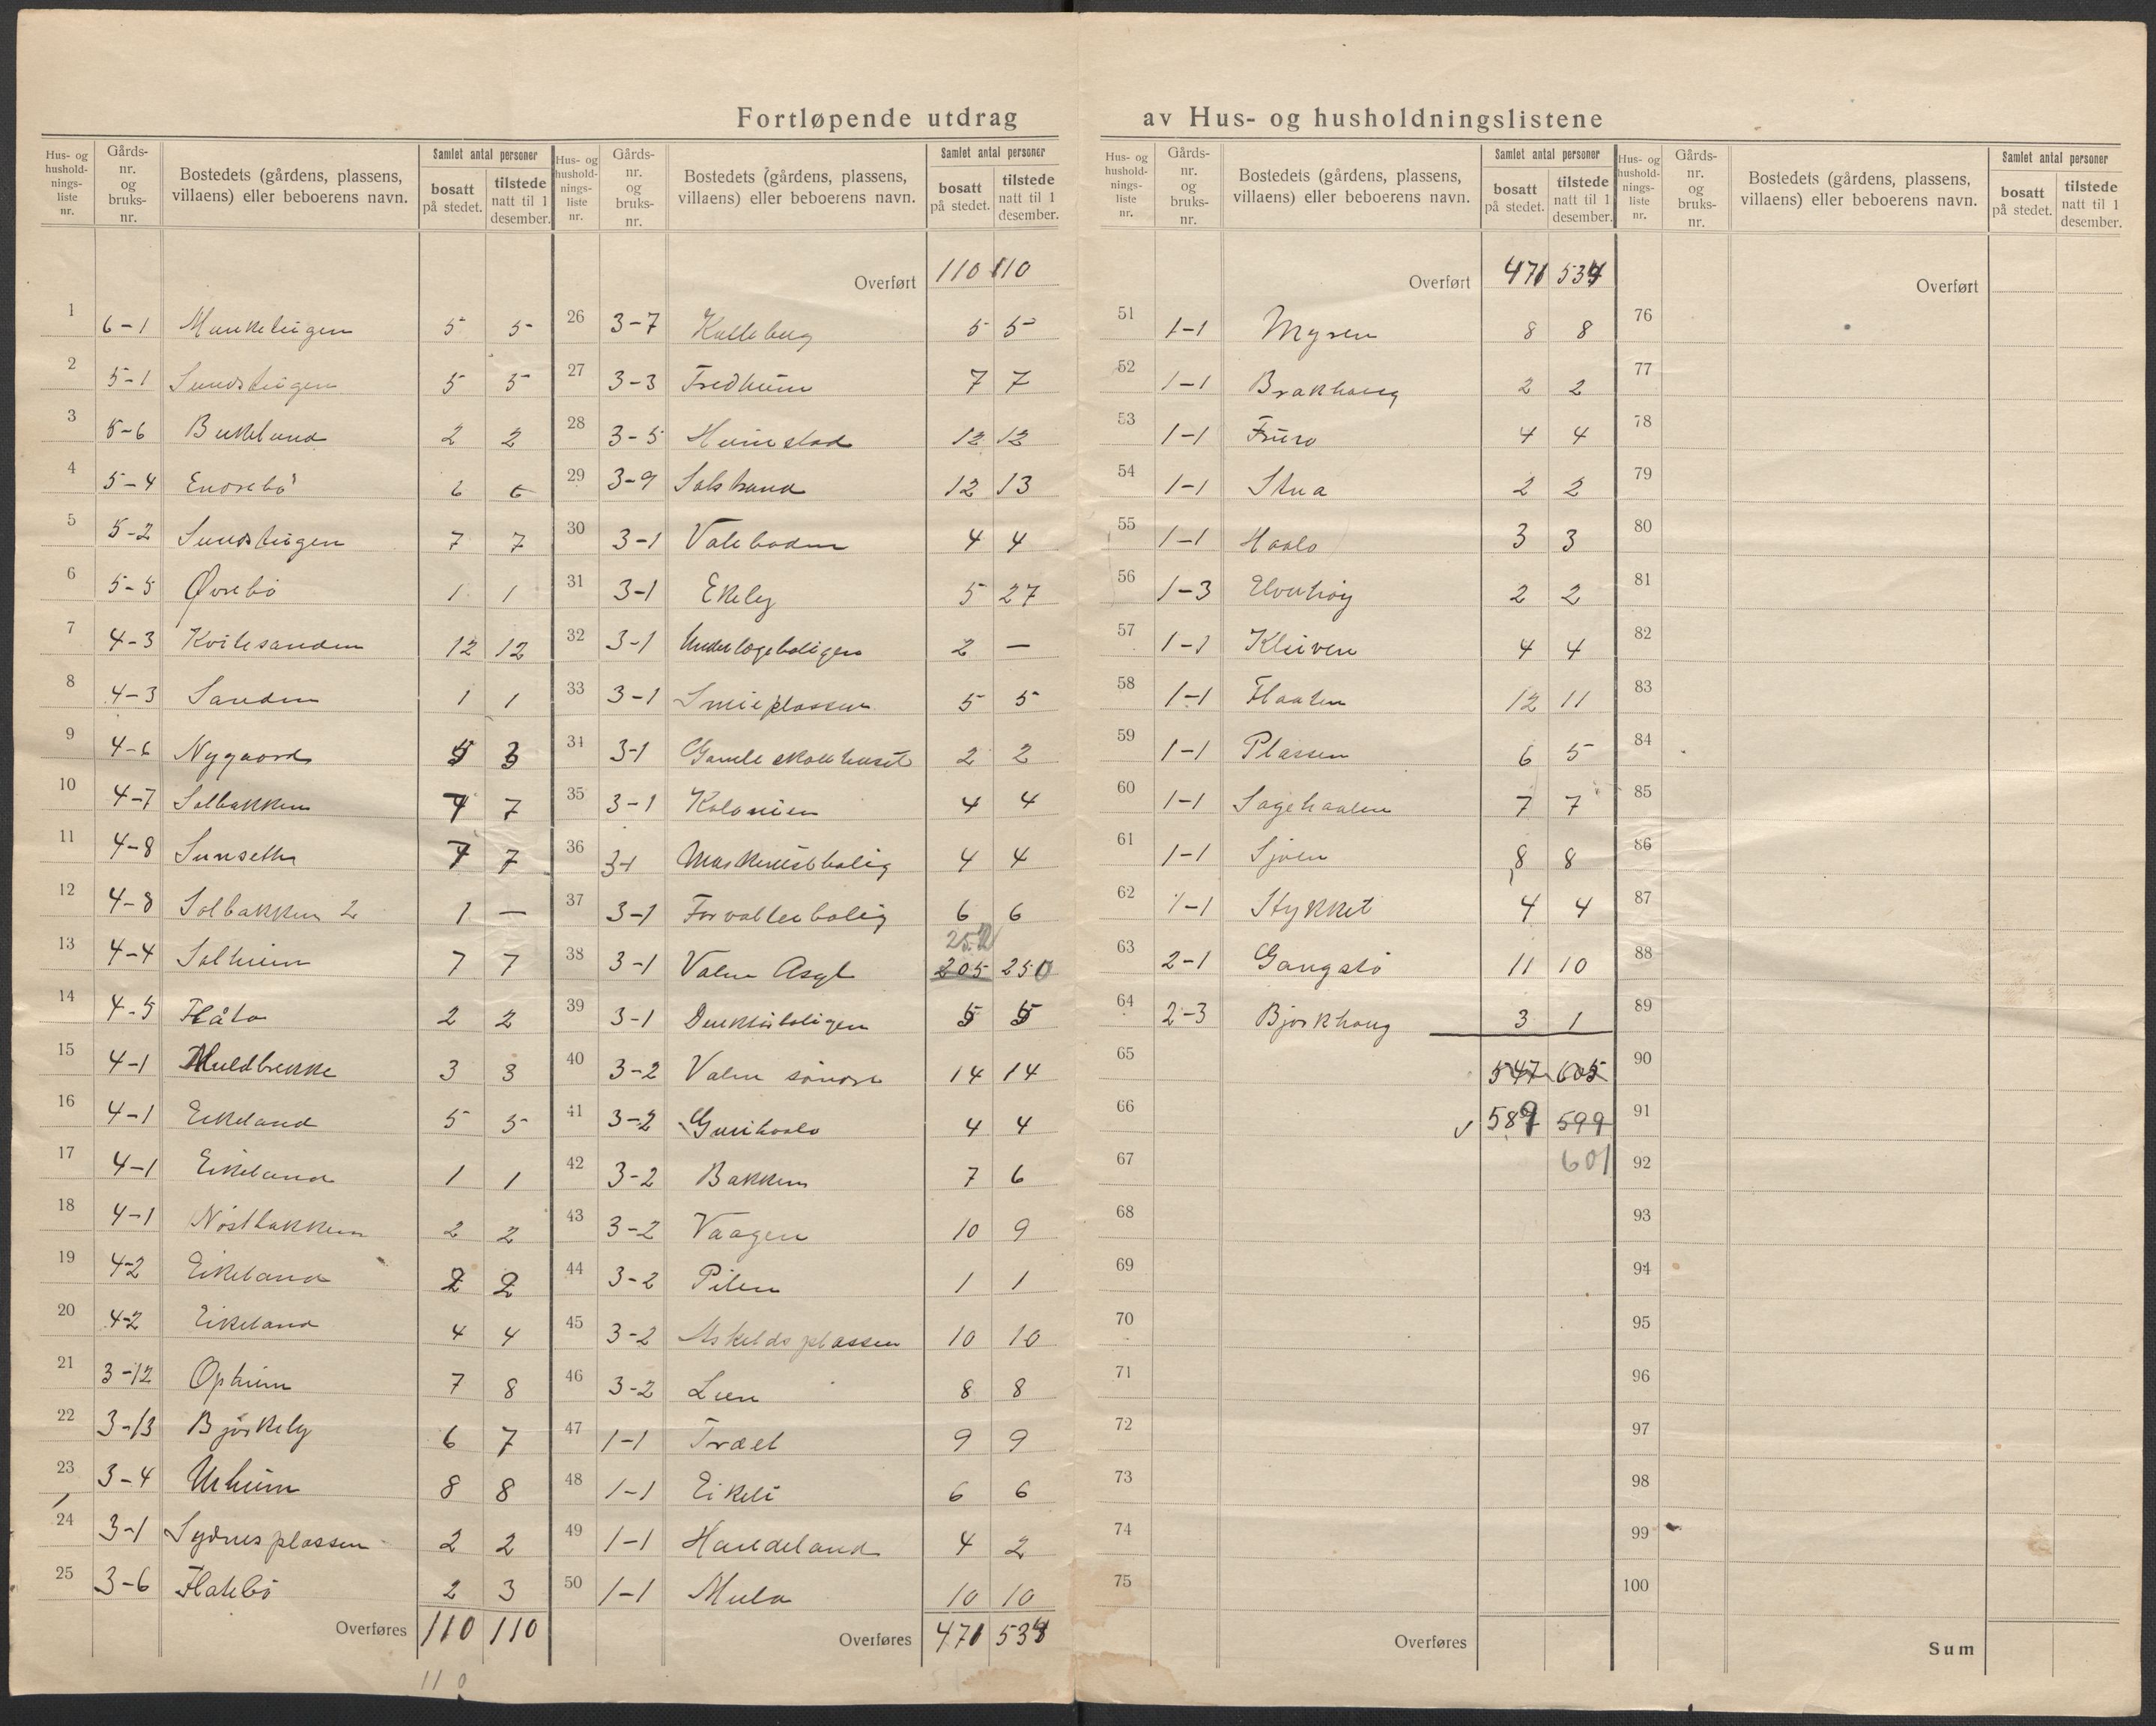 Fortløpende utdrag av Hus- og husholdningslistene
Hus- og hushold-nings-liste nr. Gårds-nr. og bruks-nr. Bostedets (gårdens, plassens, villaens) eller beboerens navn. Samlet antal personer bosatt på stedet. tilstede natt til 1 desember.
1 6-1 Munketingen 5 5
2 5-1 Sundstingen 5 5
3 5-6 Birkeland 2 2
4 5-4 Endrebö 6 6
5 5-2 Sundstingen 7 7
6 5-5 Øvrebö 1 1
7 4-3 Kvilesanden 12 12
8 4-3 Sanden 1 1
9 4-6 Nygaard 5 3
10 4-7 Solbakken 7 7
11 4-8 Sunseth 7 7
12 4-8 Solbakken 2 1 —
13 4-4 Solheim 7 7
14 4-5 Flåta 2 2
15 4-1 Muldbrekke 3 3
16 4-1 Eikeland 5 5
17 4-1 Eikeland 1 1
18 4-1 Nöstbakken 2 2
19 4-2 Eikeland 2 2
20 4-2 Eikeland 4 4
21 3-12 Opheim 7 8
22 3-13 Björkely 6 7
23 3-4 Urheim 8 8
24 3-1 Sydnesplassen 2 2
25 3-6 Flatebö 2 3
Overføres 110 110
110
Hus- og hushold-nings-liste nr. Gårds-nr. og bruks-nr. Bostedets (gårdens, plassens, villaens) eller beboerens navn. Samlet antal personer bosatt på stedet. tilstede natt til 1 desember.
Overført 110 110
26 3-7 Kalleberg 5 5
27 3-3 Fredheim 7 7
28 3-5 Heimstad 12 12
29 3-9 Solstrand 12 13
30 3-1 Valeboden 4 4
31 3-1 Ekely 5 27
32 3-1 Underlægeboligen 2 —
33 3-1 Smieplassen 5 5
34 3-1 Gamle skolehuset 2 2
35 3-1 Kolonien 4 4
36 3-1 Maskinistbolig 4 4
37 3-1 Forvalterbolig 6 6
252
38 3-1 Valen Asyl 205 250
39 3-1 Direktörboligen 5 5
40 3-2 Valen söndre 14 14
41 3-2 Gurihaalo 4 4
42 3-2 Bakken 7 6
43 3-2 Vaagen 10 9
44 3-2 Pilen 1 1
45 3-2 Askeldsplassen 10 10
46 3-2 Lien 8 8
47 1-1 Træet 9 9
48 1-1 Eikeli 6 6
49 1-1 Handeland 4 2
50 1-1 Mula 10 10
Overføres 471 534
Hus- og hushold-nings-liste nr. Gårds-nr. og bruks-nr. Bostedets (gårdens, plassens, villaens) eller beboerens navn. Samlet antal personer bosatt på stedet. tilstede natt til 1 desember.
Overført 471 534
51 1-1 Myren 8 8
52 1-1 Brakhaug 2 2
53 1-1 Furo 4 4
54 1-1 Stua 2 2
55 1-1 Haalo 3 3
56 1-3 Elvehöy 2 2
57 1-1 Kleiven 4 4
58 1-1 Flaaten 12 11
59 1-1 Plassen 6 5
60 1-1 Sagehaalen 7 7
61 1-1 Sjoen 8 8
62 1-1 Stykket 4 4
63 2-1 Gangstö 11 10
64 2-3 Björkhaug 3 1
65 547 605
66 √ 589 599
67 601
68
69
70
71
72
73
74
75
Overføres
Hus- og hushold-nings-liste nr. Gårds-nr. og bruks-nr. Bostedets (gårdens, plassens, villaens) eller beboerens navn. Samlet antal personer bosatt på stedet. tilstede natt til 1 desember.
Overført
76
77
78
79
80
81
82
83
84
85
86
87
88
89
90
91
92
93
94
95
96
97
98
99
100
Sum